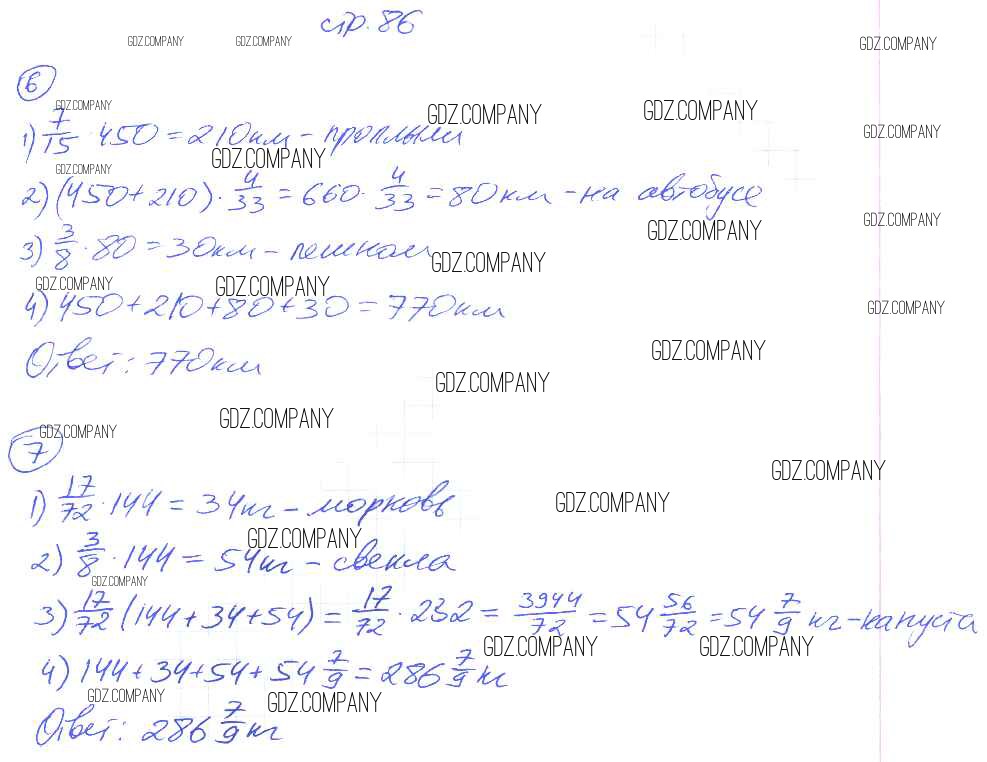 стр. 86
GDZ.COMPANY GDZ.COMPANY GDZ.COMPANY
6
GDZ.COMPANY GDZ.COMPANY GDZ.COMPANY
1) 7/15 · 450 = 210км – проплыли GDZ.COMPANY
GDZ.COMPANY GDZ.COMPANY
2) (450+210) · 4/33 = 660 · 4/33 = 80км – на автобусе
GDZ.COMPANY GDZ.COMPANY
3) 3/8 · 80 = 30км – пешком GDZ.COMPANY
GDZ.COMPANY GDZ.COMPANY
4) 450+210+80+30 = 770км GDZ.COMPANY
Ответ: 770км GDZ.COMPANY
GDZ.COMPANY
GDZ.COMPANY
GDZ.COMPANY
7
GDZ.COMPANY
1) 17/72 · 144 = 34кг – морковь GDZ.COMPANY
GDZ.COMPANY
2) 3/8 · 144 = 54кг – свекла
GDZ.COMPANY
3) 17/72 (144+34+54) = 17/72 · 232 = 3944/72 = 54 56/72 = 54 7/9 кг – капуста
GDZ.COMPANY GDZ.COMPANY
4) 144+34+54+54 7/9 = 286 7/9 кг
GDZ.COMPANY GDZ.COMPANY
Ответ: 286 7/9 кг